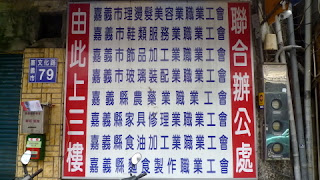 聯合辦公處
嘉義市理燙髮美容業職業工會
嘉義市鞋類服務業職業工會
嘉義市飾品加工業職業工會
嘉義市玻璃裝配業職業工會
嘉義縣農藥業職業工會
嘉義縣家具修理業職業工會
嘉義縣食油加工業職業工會
嘉義縣麵食製作職業工會
由此上三樓
嘉義市
文化路
79